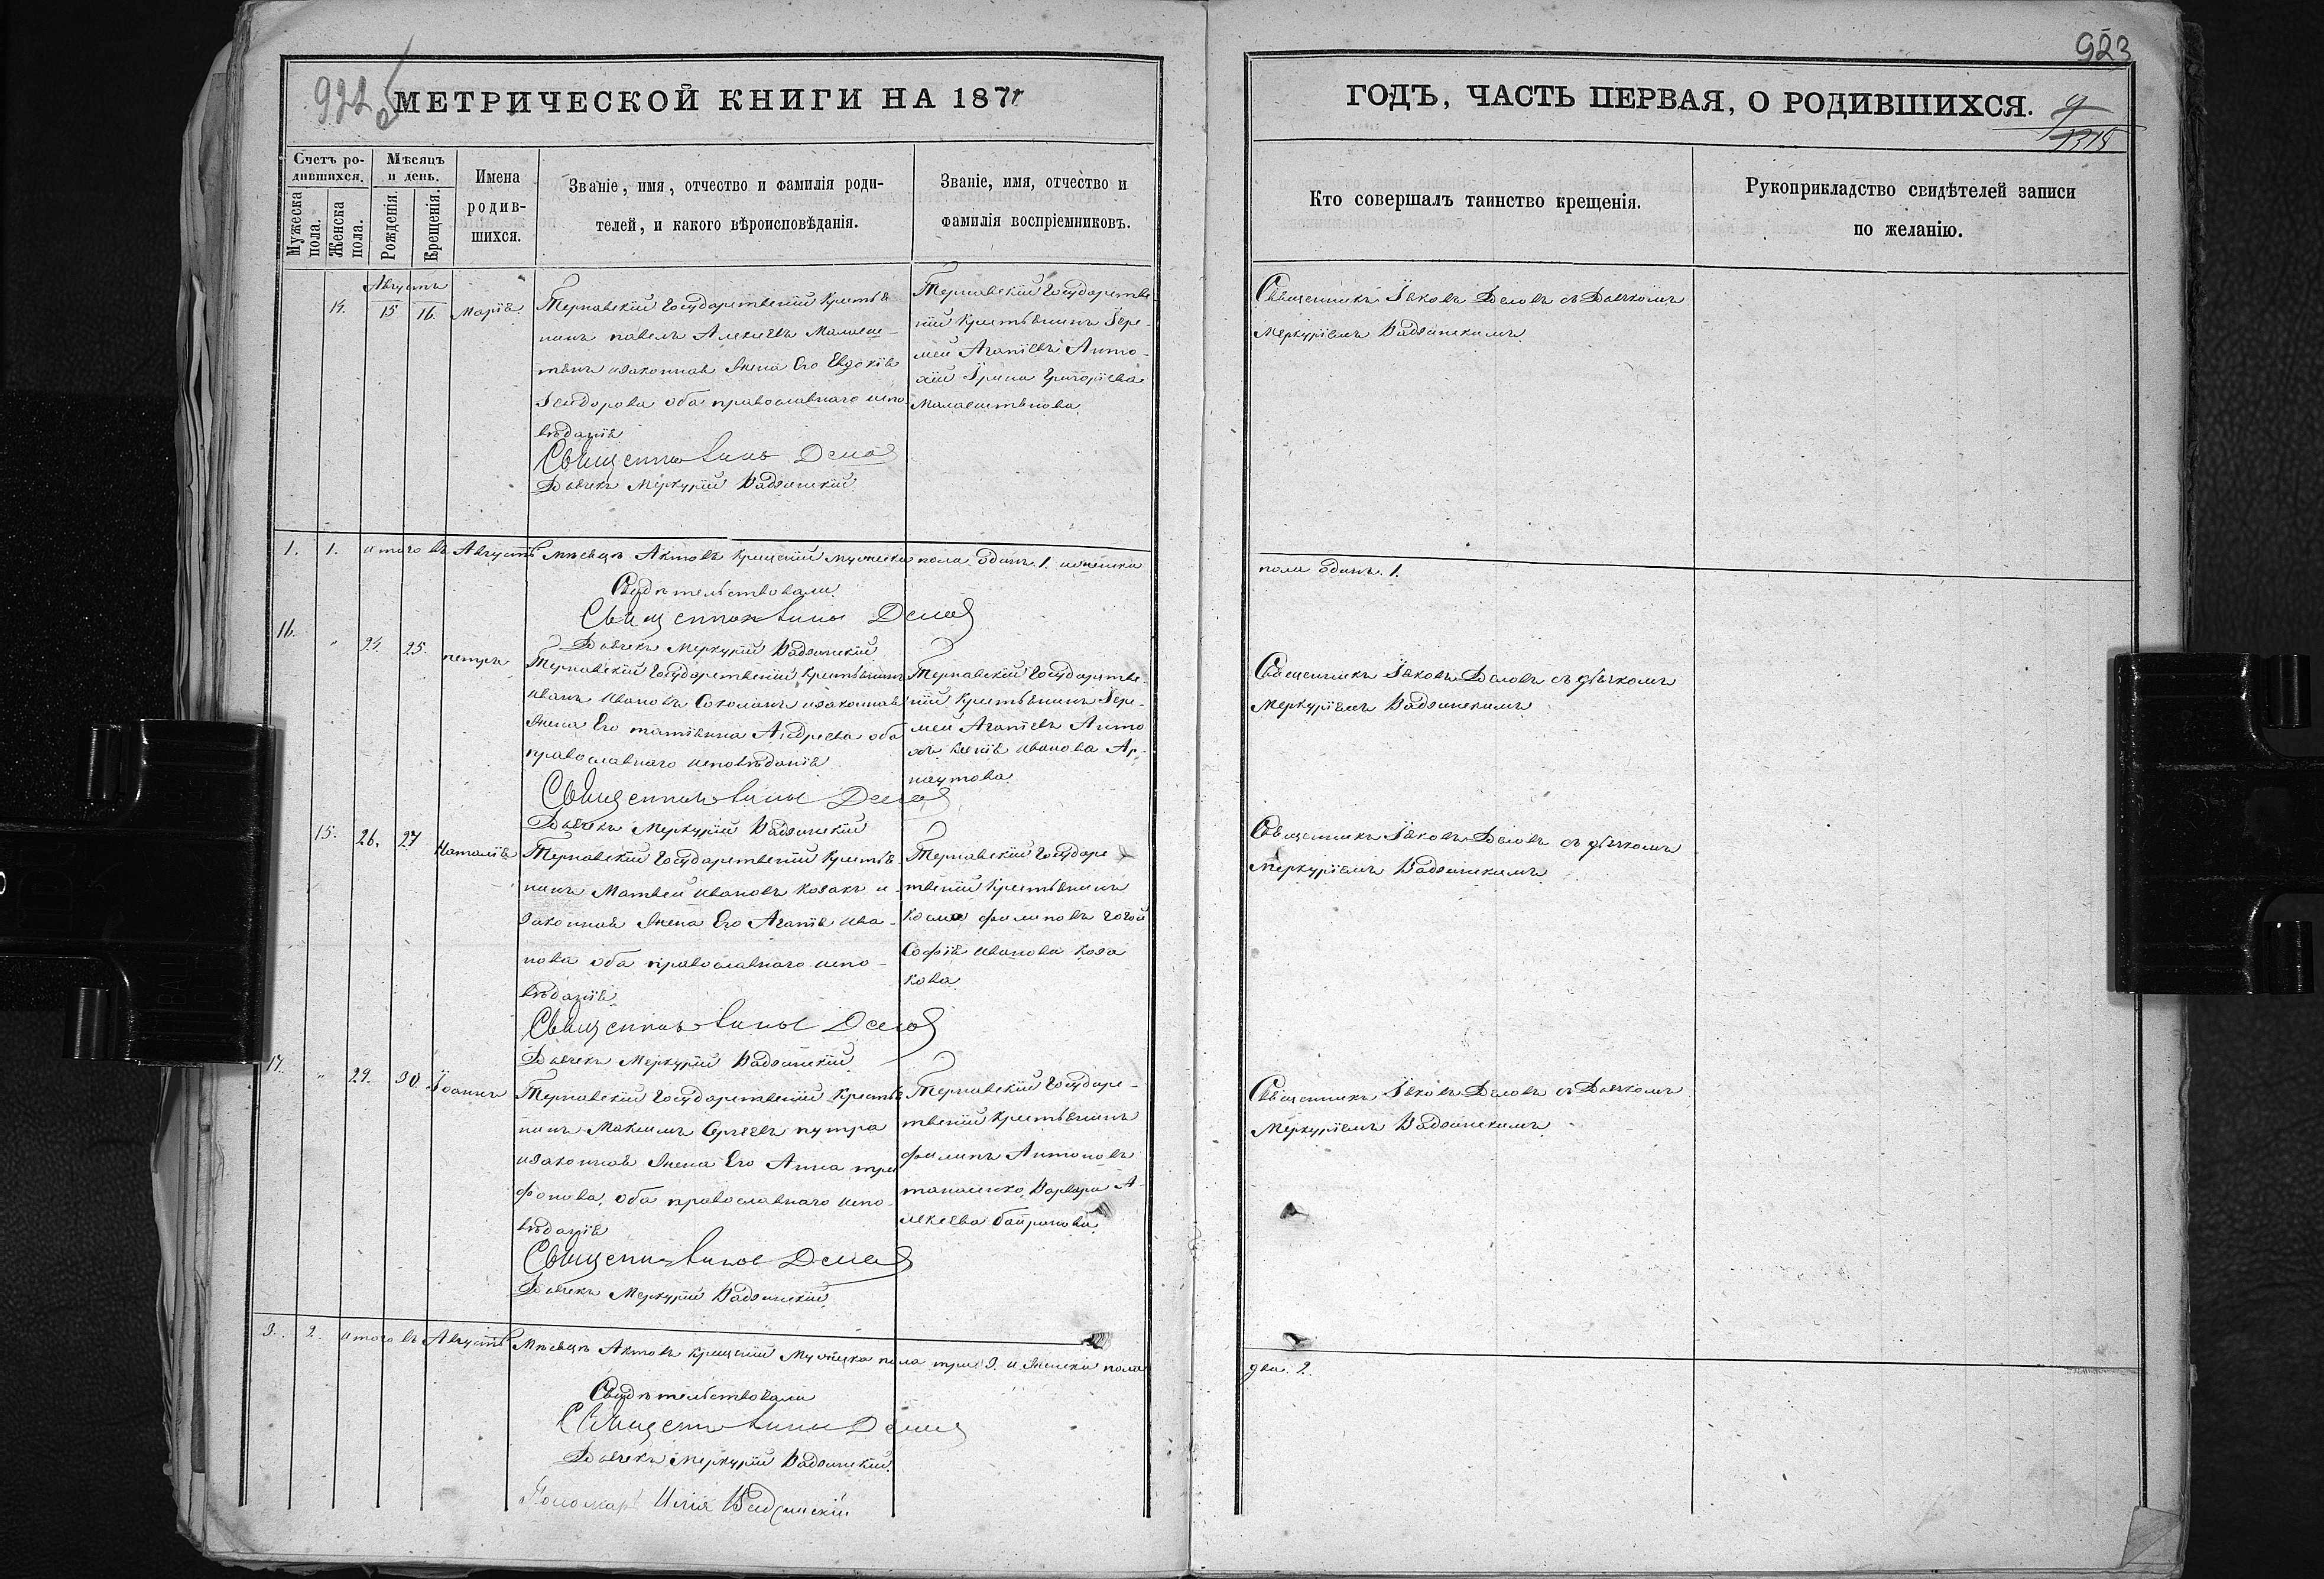 923
922 об
МЕТРИЧЕСКОЙ КНИГИ НА 1871
ГОДЪ, ЧАСТЬ ПЕРВАЯ, О РОДИВШИХСЯ.
Счетъ ро-
дившихся.
Мужеска
пола.
Женска
пола.
Мѣсяцъ
и день.
Рожденія.
Крещенія.
Имена
родив-
шихся.
Званіе, имя, отчество и фамилія роди-
телей, и какого вѣроисповѣданія.
Званіе, имя, отчество и
фамилія воспріемниковъ.
Кто совершалъ таинство крещенія.
Рукоприкладство свидѣтелей записи
по желанію.
Августъ
14. 15 16. Марія
Терновскій Государственій Крестья
нинъ павелъ Алексѣевъ
изаконная Жена Его Евдокія
Ѳеодорова оба православнаго испо-
вѣданія
Священникъ
Дьячекъ Меркурій
Терновскій Государстве-
ній Крестьянинъ Іере-
мей Агапіевъ Анто-
хій Ірина Григоріева
Священникъ Іаковъ съ Дьячкомъ
Меркуріемъ
1. 1. итого въ Августѣ мѣсяцѣ Актовъ Крещеній мужеска пола Одинъ. 1. иженска
пола Одинъ. 1.
Свидѣтельствовали
Священникъ
Дьячекъ Меркурій
16. „ 24. 25. петръ
Терновскій Государственій Крестьянинъ
иванъ Ивановъ Соколанъ изаконная
Жена Его татіянна Андреева оба
православнаго исповѣданія
Священникъ
Дьячекъ Меркурій
Терновскій Государстве-
ній Крестьянинъ Іере-
мей Агапіевъ Анто
иванова Ар-
наутова
Священникъ Іаковъ съ дьячкомъ
Меркуріемъ
15. 26. 27 Наталія
Терновскій Государственій Крестья
нинъ Матвей ивановъ Козакъ и
законная Жена Его Агапія ива-
нова оба православнаго испо-
вѣданія
Священникъ
Дьячекъ Меркурій
Терновскій Государс
твеній Крестьянинъ
Козма филиповъ гогой
Софія иванова Коза
кова
Священникъ Іаковъ съ дьячкомъ
Меркуріемъ
17. „ 29. 30. Іоаннъ
Терновскій Государственій Крестья
нинъ Максимъ Сергѣевъ путря
изаконная Жена Его Анна три
фонова оба православнаго испо-
вѣданія
Священникъ
Дьячекъ Меркурій
Терновскій Государс-
твеній Крестьянинъ
филипъ Антоновъ
Варвара А-
лексѣева
Священникъ Іаковъ съ Дьячкомъ
Меркуріемъ
3. 2. итого въ Августѣ Мѣсяцѣ Актовъ Крещеній Мужеска пола три 3. и Женска пола
два. 2.
Свидѣтельствовали
Священникъ
Дьячекъ Меркурій
Пономарь Илія